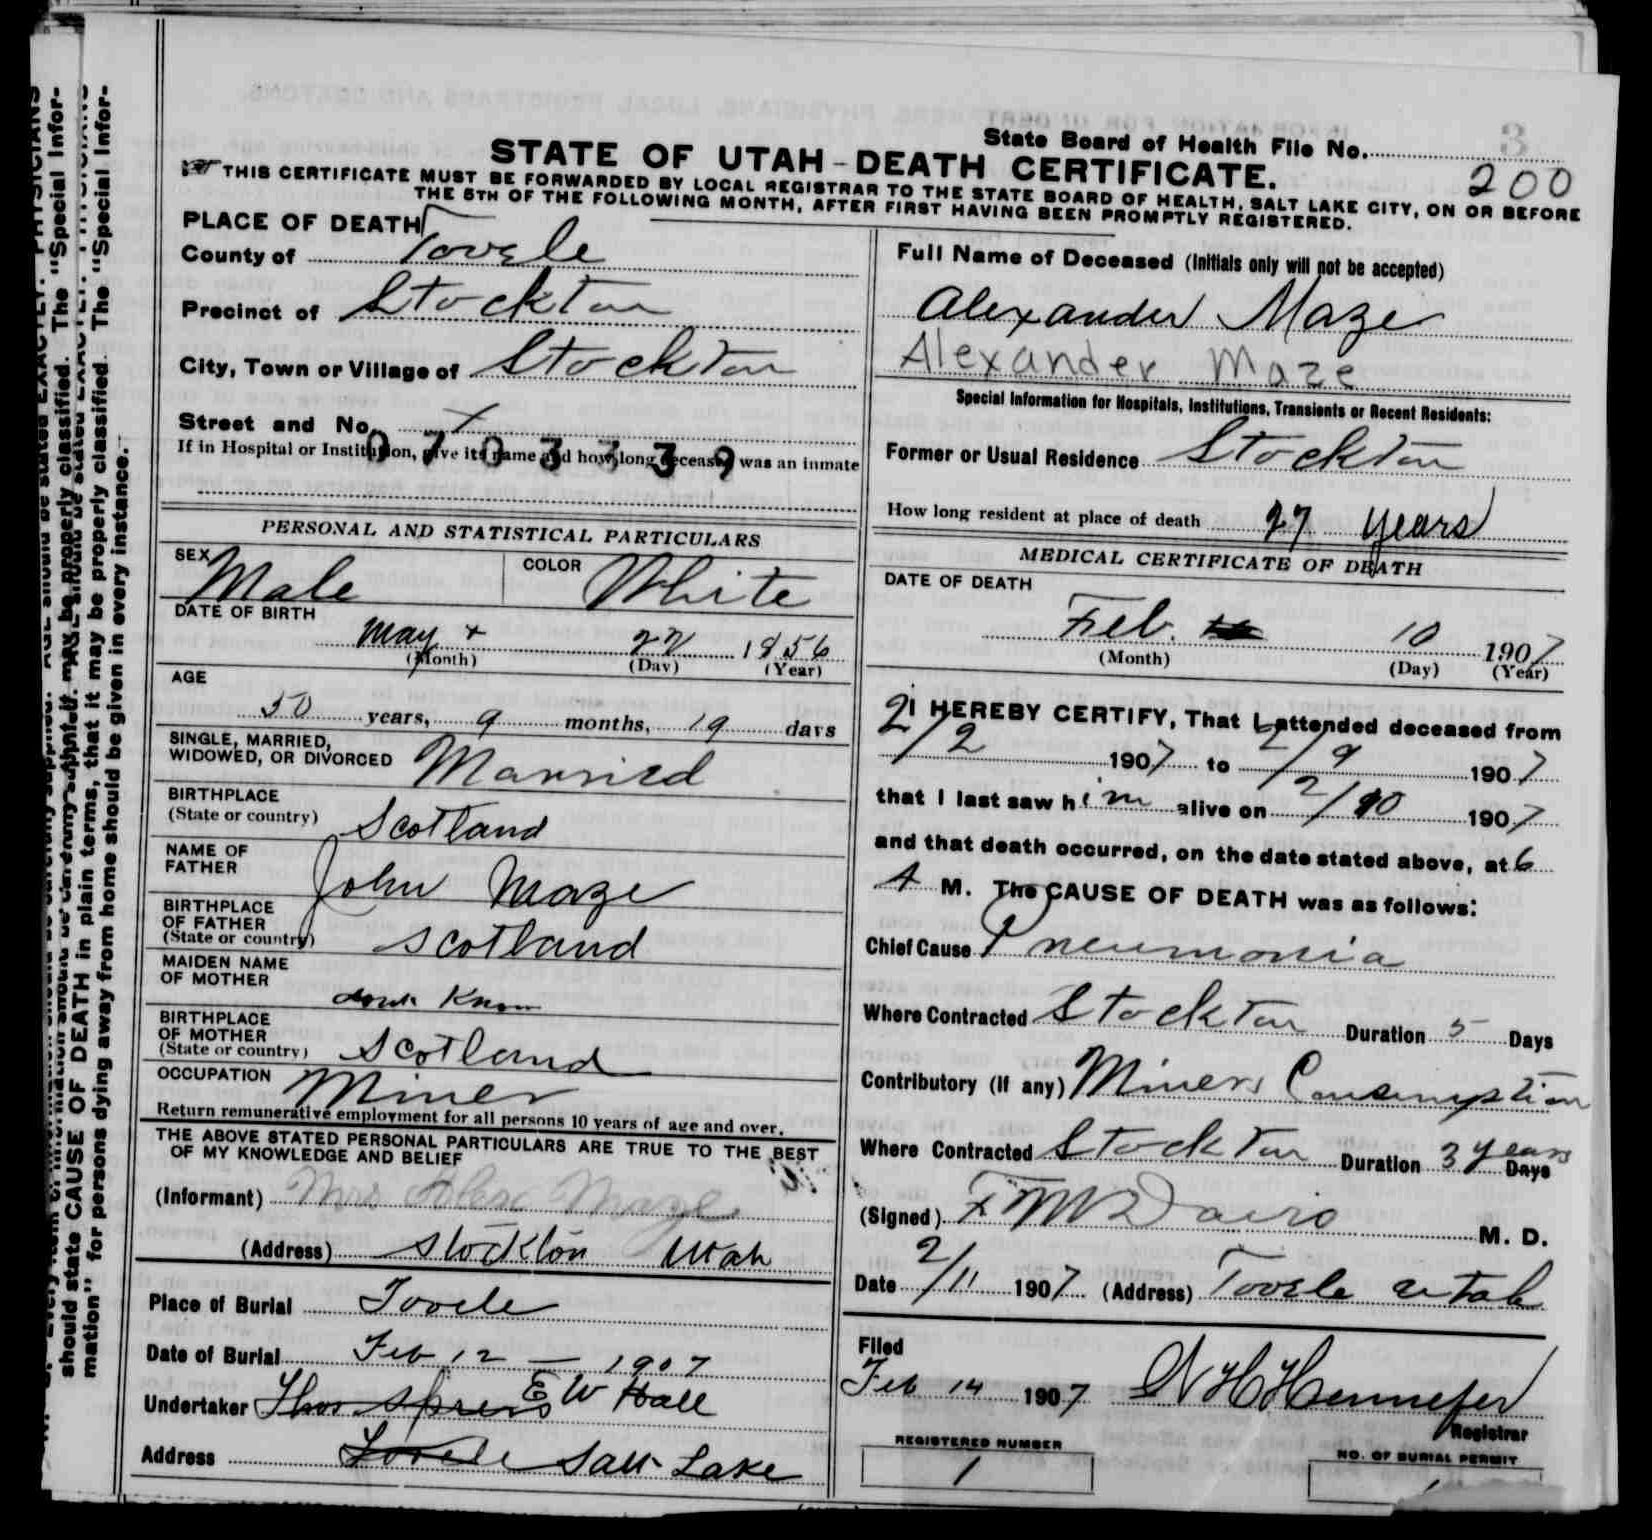 State Board of Health File No.
200
STATE OF UTAH-DEATH CERTIFICATE.
THIS CERTIFICATE MUST BE FORWARDED BY LOCAL REGISTRAR TO THE STATE BOARD OF HEALTH, SALT LAKE CITY, ON OR BEFORE
THE 5TH OF THE FOLLOWING MONTH, AFTER FIRST HAVING BEEN PROMPTLY REGISTERED.
PLACE OF DEATH
County of Tooele
Precinct of Stockton
City, Town or Village of Stockton
Street and No. X
0703339
If in Hospital or Institution, give its name and how long deceased was an inmate
PERSONAL AND STATISTICAL PARTICULARS
SEX Male COLOR White
DATE OF BIRTH
May + 22 1856
(Month) (Day) (Year)
AGE
50 years, 9 months, 19 days
SINGLE, MARRIED,
WIDOWED, OR DIVORCED Married
BIRTHPLACE
(State or country) Scotland
NAME OF
FATHER John Maze
BIRTHPLACE
OF FATHER
(State or country) Scotland
MAIDEN NAME
OF MOTHER
dont Know
BIRTHPLACE
OF MOTHER
(State or country) Scotland
OCCUPATION Miner
Return remunerative employment for all persons 10 years of age and over.
THE ABOVE STATED PERSONAL PARTICULARS ARE TRUE TO THE BEST
OF MY KNOWLEDGE AND BELIEF
(Informant) Mrs Alex Maze
(Address) Stockton Utah
Place of Burial Tooele
Date of Burial Feb 12 — 1907
Undertaker Thos E W Hall
Address Tooele Salt Lake
Full Name of Deceased (Initials only will not be accepted)
Alexander Maze
Alexander Maze
Special Information for Hospitals, Institutions, Transients or Recent Residents:
Former or Usual Residence Stockton
How long resident at place of death 27 years
MEDICAL CERTIFICATE OF DEATH
DATE OF DEATH
Feb. 10 1907
(Month) (Day) (Year)
I HEREBY CERTIFY, That I attended deceased from
2/2 1907 to 2/9 1907
that I last saw him alive on 2/10 1907
and that death occurred, on the date stated above, at 6
A M. The CAUSE OF DEATH was as follows:
Chief Cause Pneumonia
Where Contracted Stockton Duration 5 Days
Contributory (if any) Miners Consumption
Where Contracted Stockton Duration 3 years Days
(Signed) F M Davis M. D.
Date 2/11 1907 (Address) Tooele Utah
Filed
Feb 14 1907 N H Hennefer
Registrar
REGISTERED NUMBER
1
NO. OF BURIAL PERMIT
should state CAUSE OF DEATH in plain terms, that it may be properly classified. The "Special Infor-
mation" for persons dying away from home should be given in every instance.